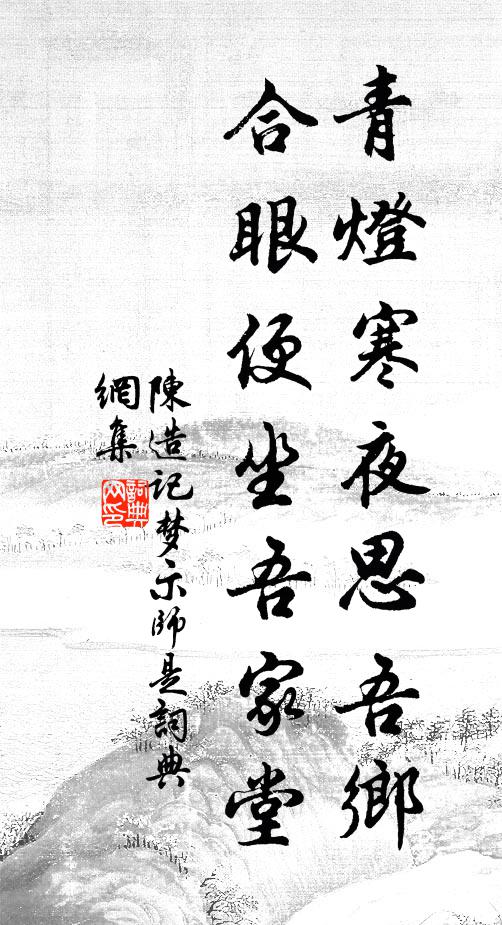 青燈寒夜思吾鄉
合眼便坐吾家堂
陳造記梦示師是詞典
網集
詞典
网印